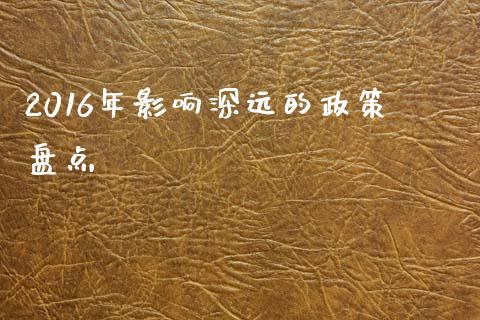 2016年影响深远的政策
盘点